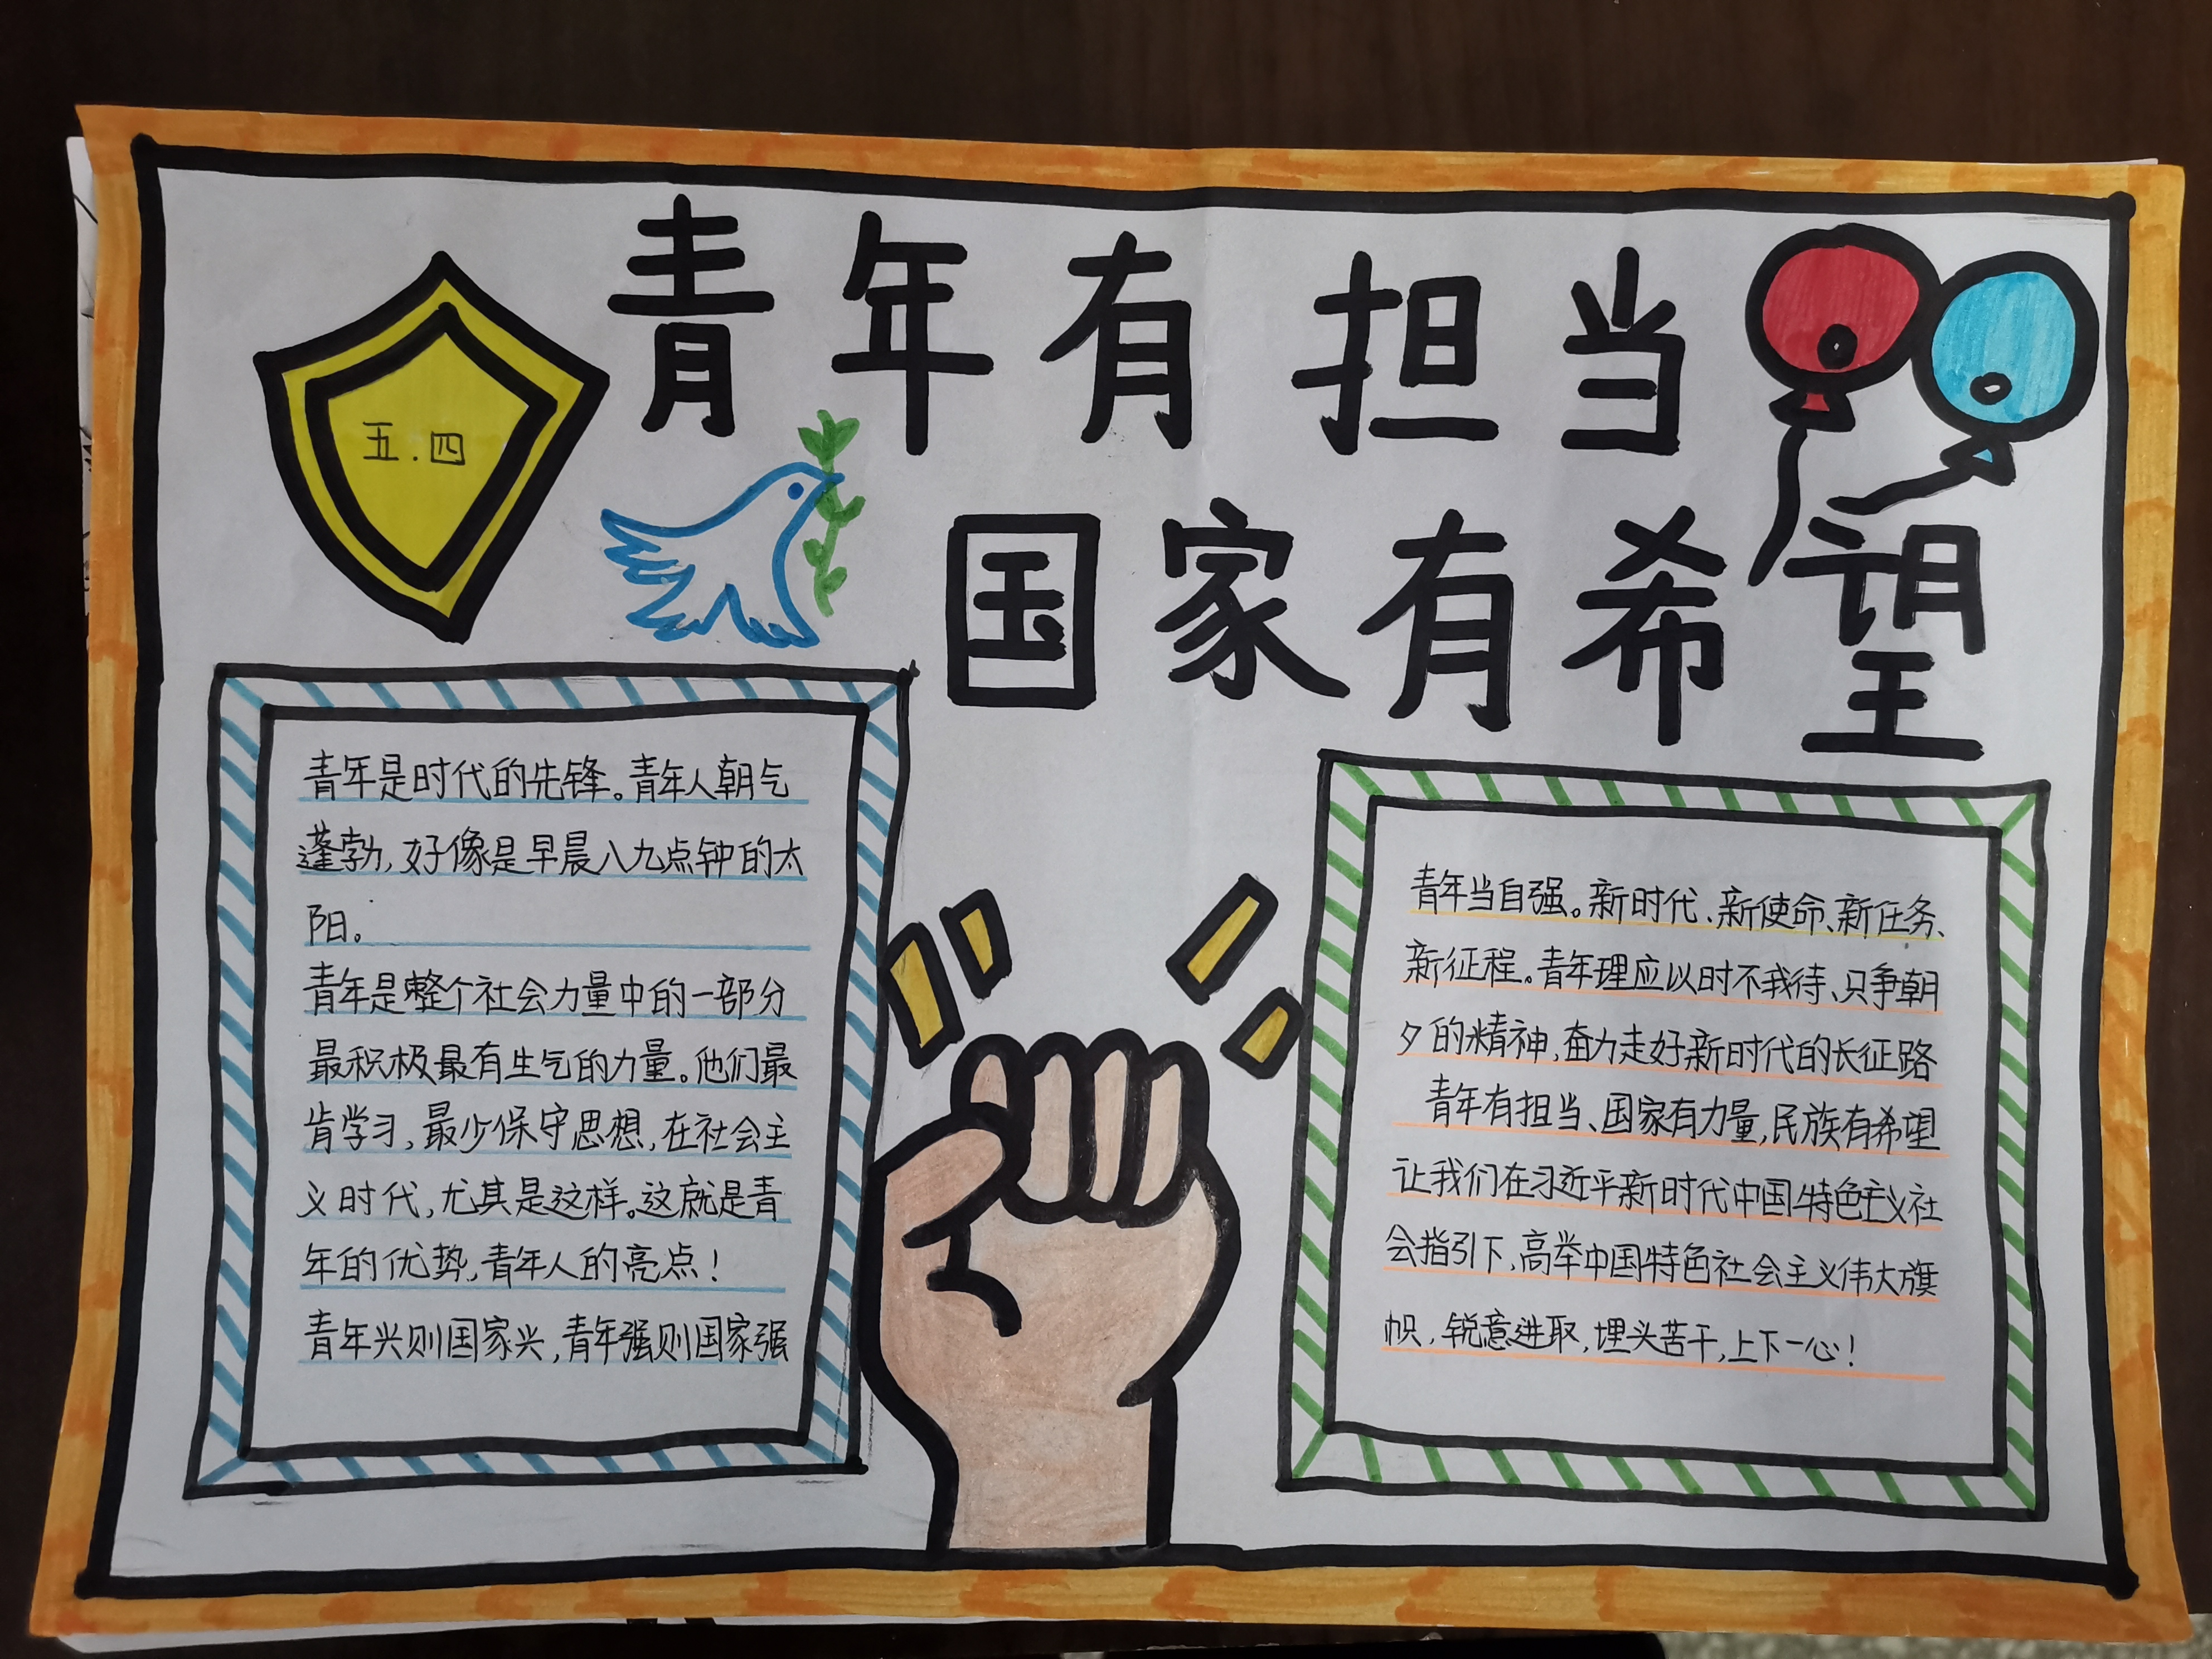 青年有担当
五.四
国家有希望
青年是时代的先锋。青年人朝气
蓬勃,好像是早晨八九点钟的太
阳。
青年是整个社会力量中的一部分
最积极最有生气的力量。他们最
肯学习,最少保守思想,在社会主
义时代,尤其是这样。这就是青
年的优势,青年人的亮点!
青年兴则国家兴,青年强则国家强
青年当自强。新时代、新使命、新任务、
新征程。青年理应以时不我待、只争朝
夕的精神,奋力走好新时代的长征路
青年有担当、国家有力量,民族有希望
让我们在习近平新时代中国特色主义社
会指引下,高举中国特色社会主义伟大旗
帜,锐意进取,埋头苦干,上下一心!